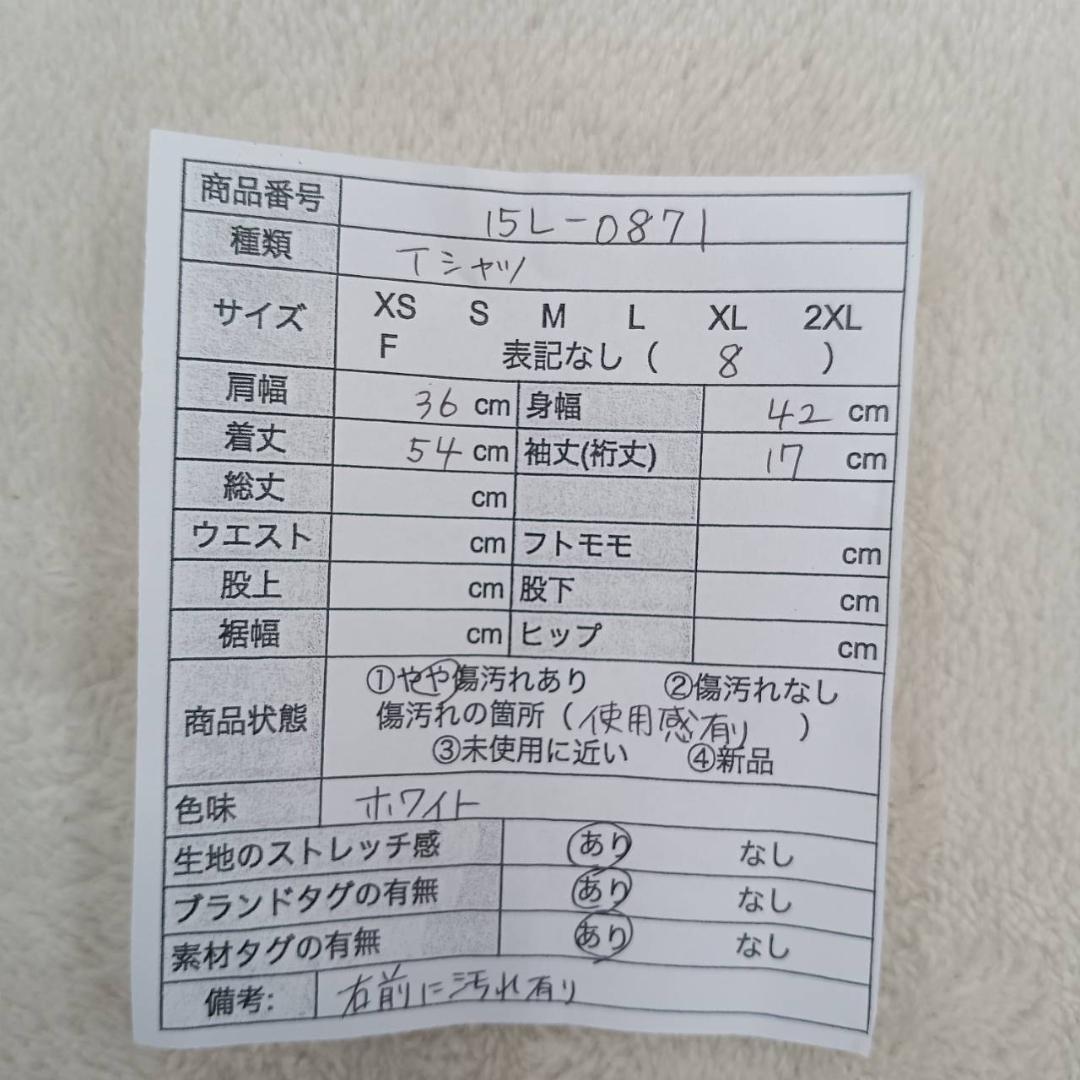 商品番号 15L-0871
種類 Tシャツ
サイズ XS S M L XL 2XL
F 表記なし ( 8 )
肩幅 36 cm 身幅 42 cm
着丈 54 cm 袖丈(裄丈) 17 cm
総丈 cm
ウエスト cm フトモモ cm
股上 cm 股下 cm
裾幅 cm ヒップ cm
商品状態 ①やや傷汚れあり ②傷汚れなし
傷汚れの箇所 ( 使用感有り )
③未使用に近い ④新品
色味 ホワイト
生地のストレッチ感 あり なし
ブランドタグの有無 あり なし
素材タグの有無 あり なし
備考: 右前に汚れ有り